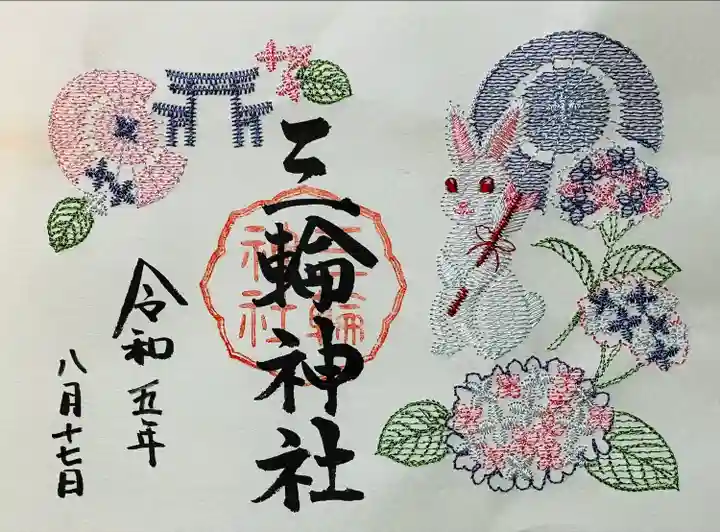 三輪神社
三輪神社
令和五年
八月十七日